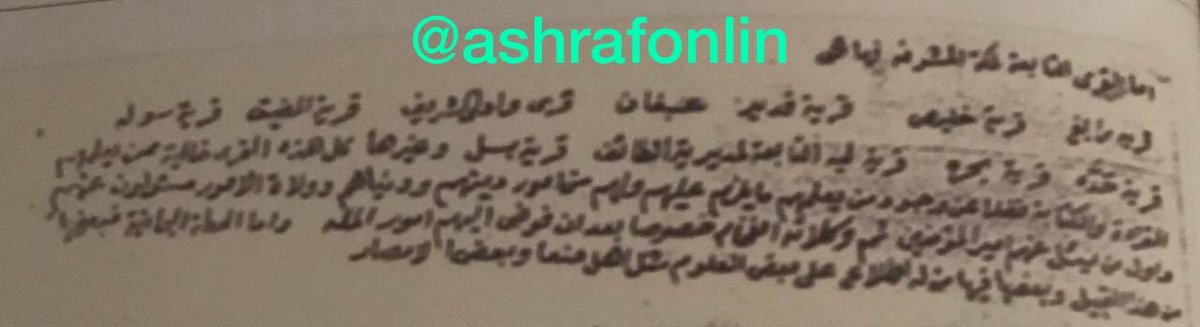 @ashrafonlin
اما القرى التابعة لمكة المشرفة فها هى
قرية رابغ قرية خليص قرية قديد عسفان قرى وادى الشريف قرية المضيق قرية سوله
قرية حده قرية بحره قرية ليه التابعة لمديرية الطائف قرية بسل وغيرها كل هذه القرى خالية ممن يعلمهم
القراءة والكتابة فضلا عن وجود من يعلمهم ما يلزم عليهم ولهم من امور دينهم ودنياهم وولاة الامور مسئولون عنهم
واول من يسئل عنهم امير المؤمنين ثم وكلائه الفخام خصوصا بعد ان فوض اليهم امور المله واما البلاد اليمانية فبعضها
من هذا القبيل وبعضها فيها من له اطلاع على بعض العلوم مثل اهل صنعا وبعض الامصار